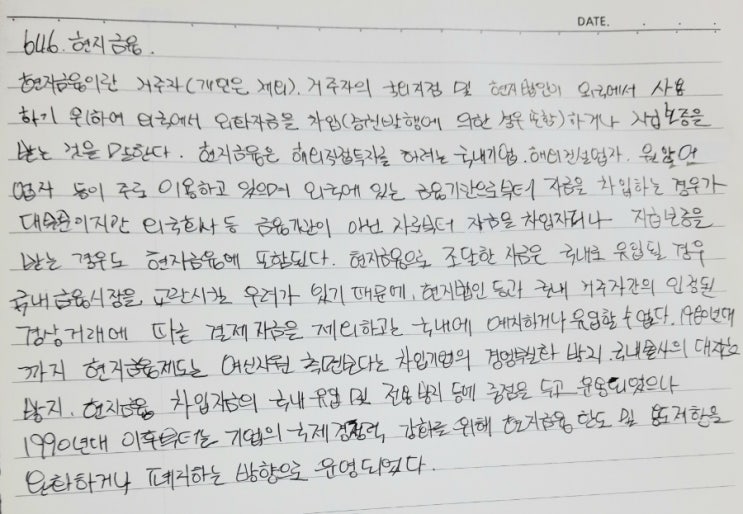 DATE.
646. 현지금융.
현지금융이란 거주자(개인은 제외). 거주자의 국외지점 및 현지법인이 외국에서 사용
하기 위하여 외국에서 외화자금을 차입(증권발행에 의한 경우 포함)하거나 지급보증을
받는 것을 말한다. 현지금융은 해외직접투자를 하려는 국내기업. 해외건설업자. 원양어
업자 등이 주로 이용하고 있으며 외국에 있는 금융기관으로부터 자금을 차입하는 경우가
대부분이지만 외국회사 등 금융기관이 아닌 자로부터 자금을 차입하거나 지급보증을
받는 경우도 현지금융에 포함된다. 현지금융으로 조달한 자금은 국내로 유입될 경우
국내금융시장을 교란시킬 우려가 있기 때문에, 현지법인 등과 국내 거주자간의 인정된
경상거래에 따른 결제자금을 제외하고는 국내에 예치하거나 유입할 수 없다. 1980년대
까지 현지금융제도는 여신지원 측면보다는 차입기업의 경영부실화 방지. 국내본사의 대지급
방지. 현지금융 차입자금의 국내 유입 및 전용 방지 등에 중점을 두고 운용되었으나
1990년대 이후부터는 기업의 국제경쟁력 강화를 위해 현지금융 한도 및 용도제한을
완화하거나 폐지하는 방향으로 운영되었다.